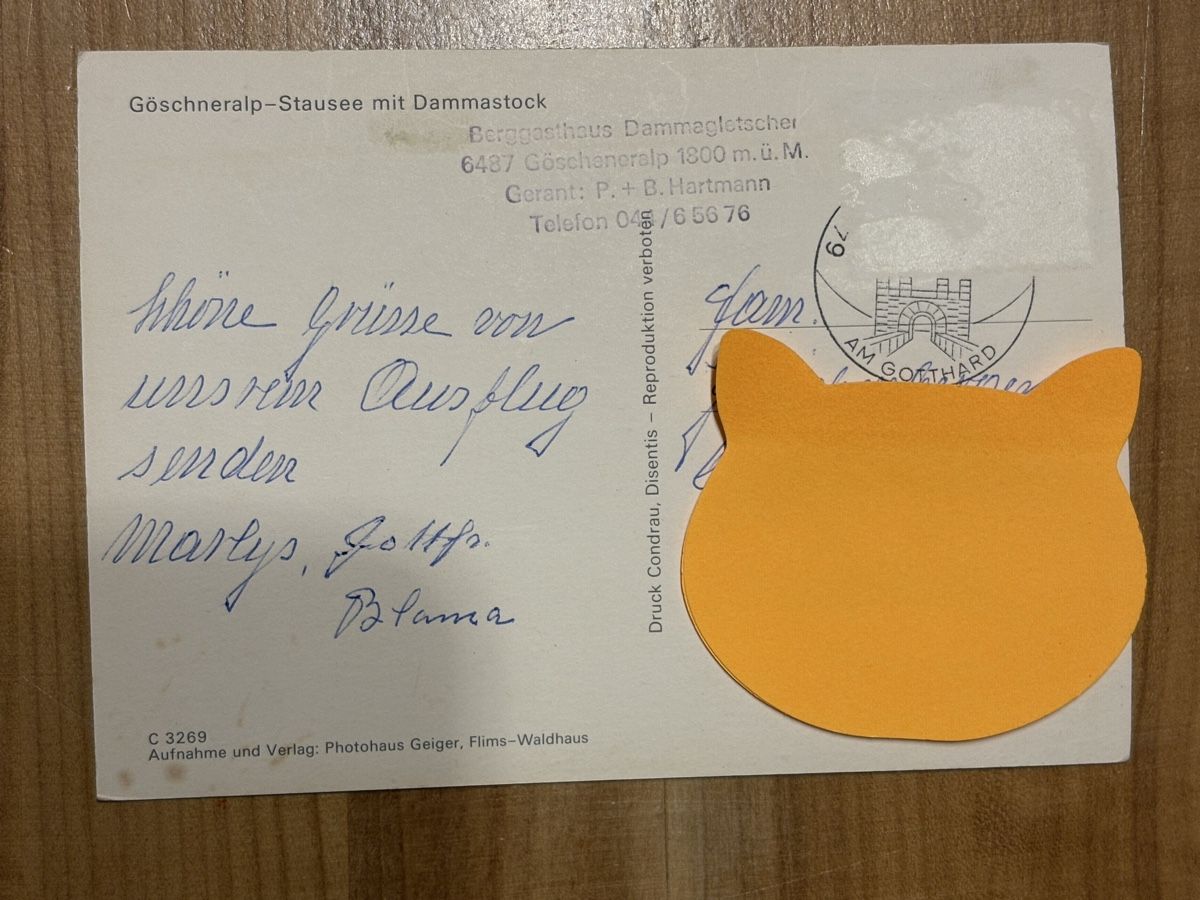 Göschneralp-Stausee mit Dammastock
Berggasthaus Dammagletscher
6487 Göscheneralp 1800 m.ü.M.
Gerant: P. + B. Hartmann
Telefon 044/6 56 76
79
AM GOTTHARD
Schöne Grüsse von
unsrem Ausflug
senden
Marlys, Gottfr.
Blanca
Fam.
Druck Condrau, Disentis – Reproduktion verboten
C 3269
Aufnahme und Verlag: Photohaus Geiger, Flims-Waldhaus